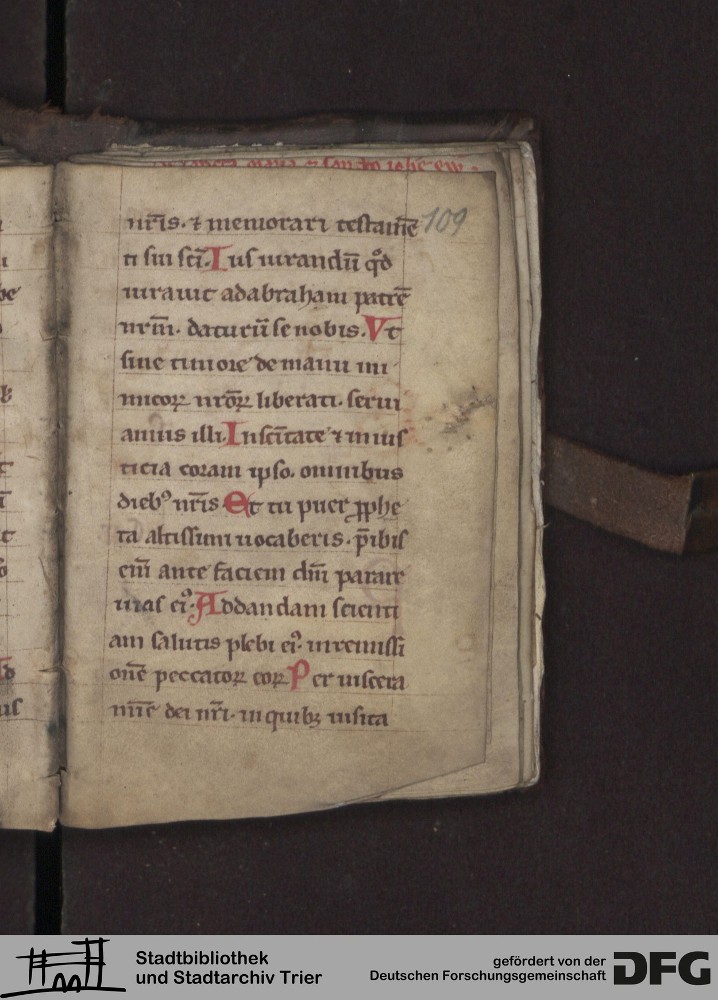 nr̄is. ⁊ memorari testam̄e
ti sui sc̄i. Ius iurandū qͦd
iurauit ad abraham patrē
nr̄m. daturū se nobis. Vt
sine timore de manu ini
micoꝝ nr̄oꝝ liberati. serui
amus illi. In sc̄itate ⁊ inius
ticia coram ipso. omnibus
dieb⁹ nr̄is Et tu puer ꝓphe
ta altissimi uocaberis. p̄ibis
eni̅ ante faciem dn̄i parare
uias ei⁹. Ad dandam scienti
am salutis plebi ei⁹. in remissi
onē peccatoꝝ eoꝝ Per uiscera
mīe dei nr̄i. in quibꝫ uisita
109
Stadtbibliothek
und Stadtarchiv Trier
gefördert von der
Deutschen Forschungsgemeinschaft
DFG